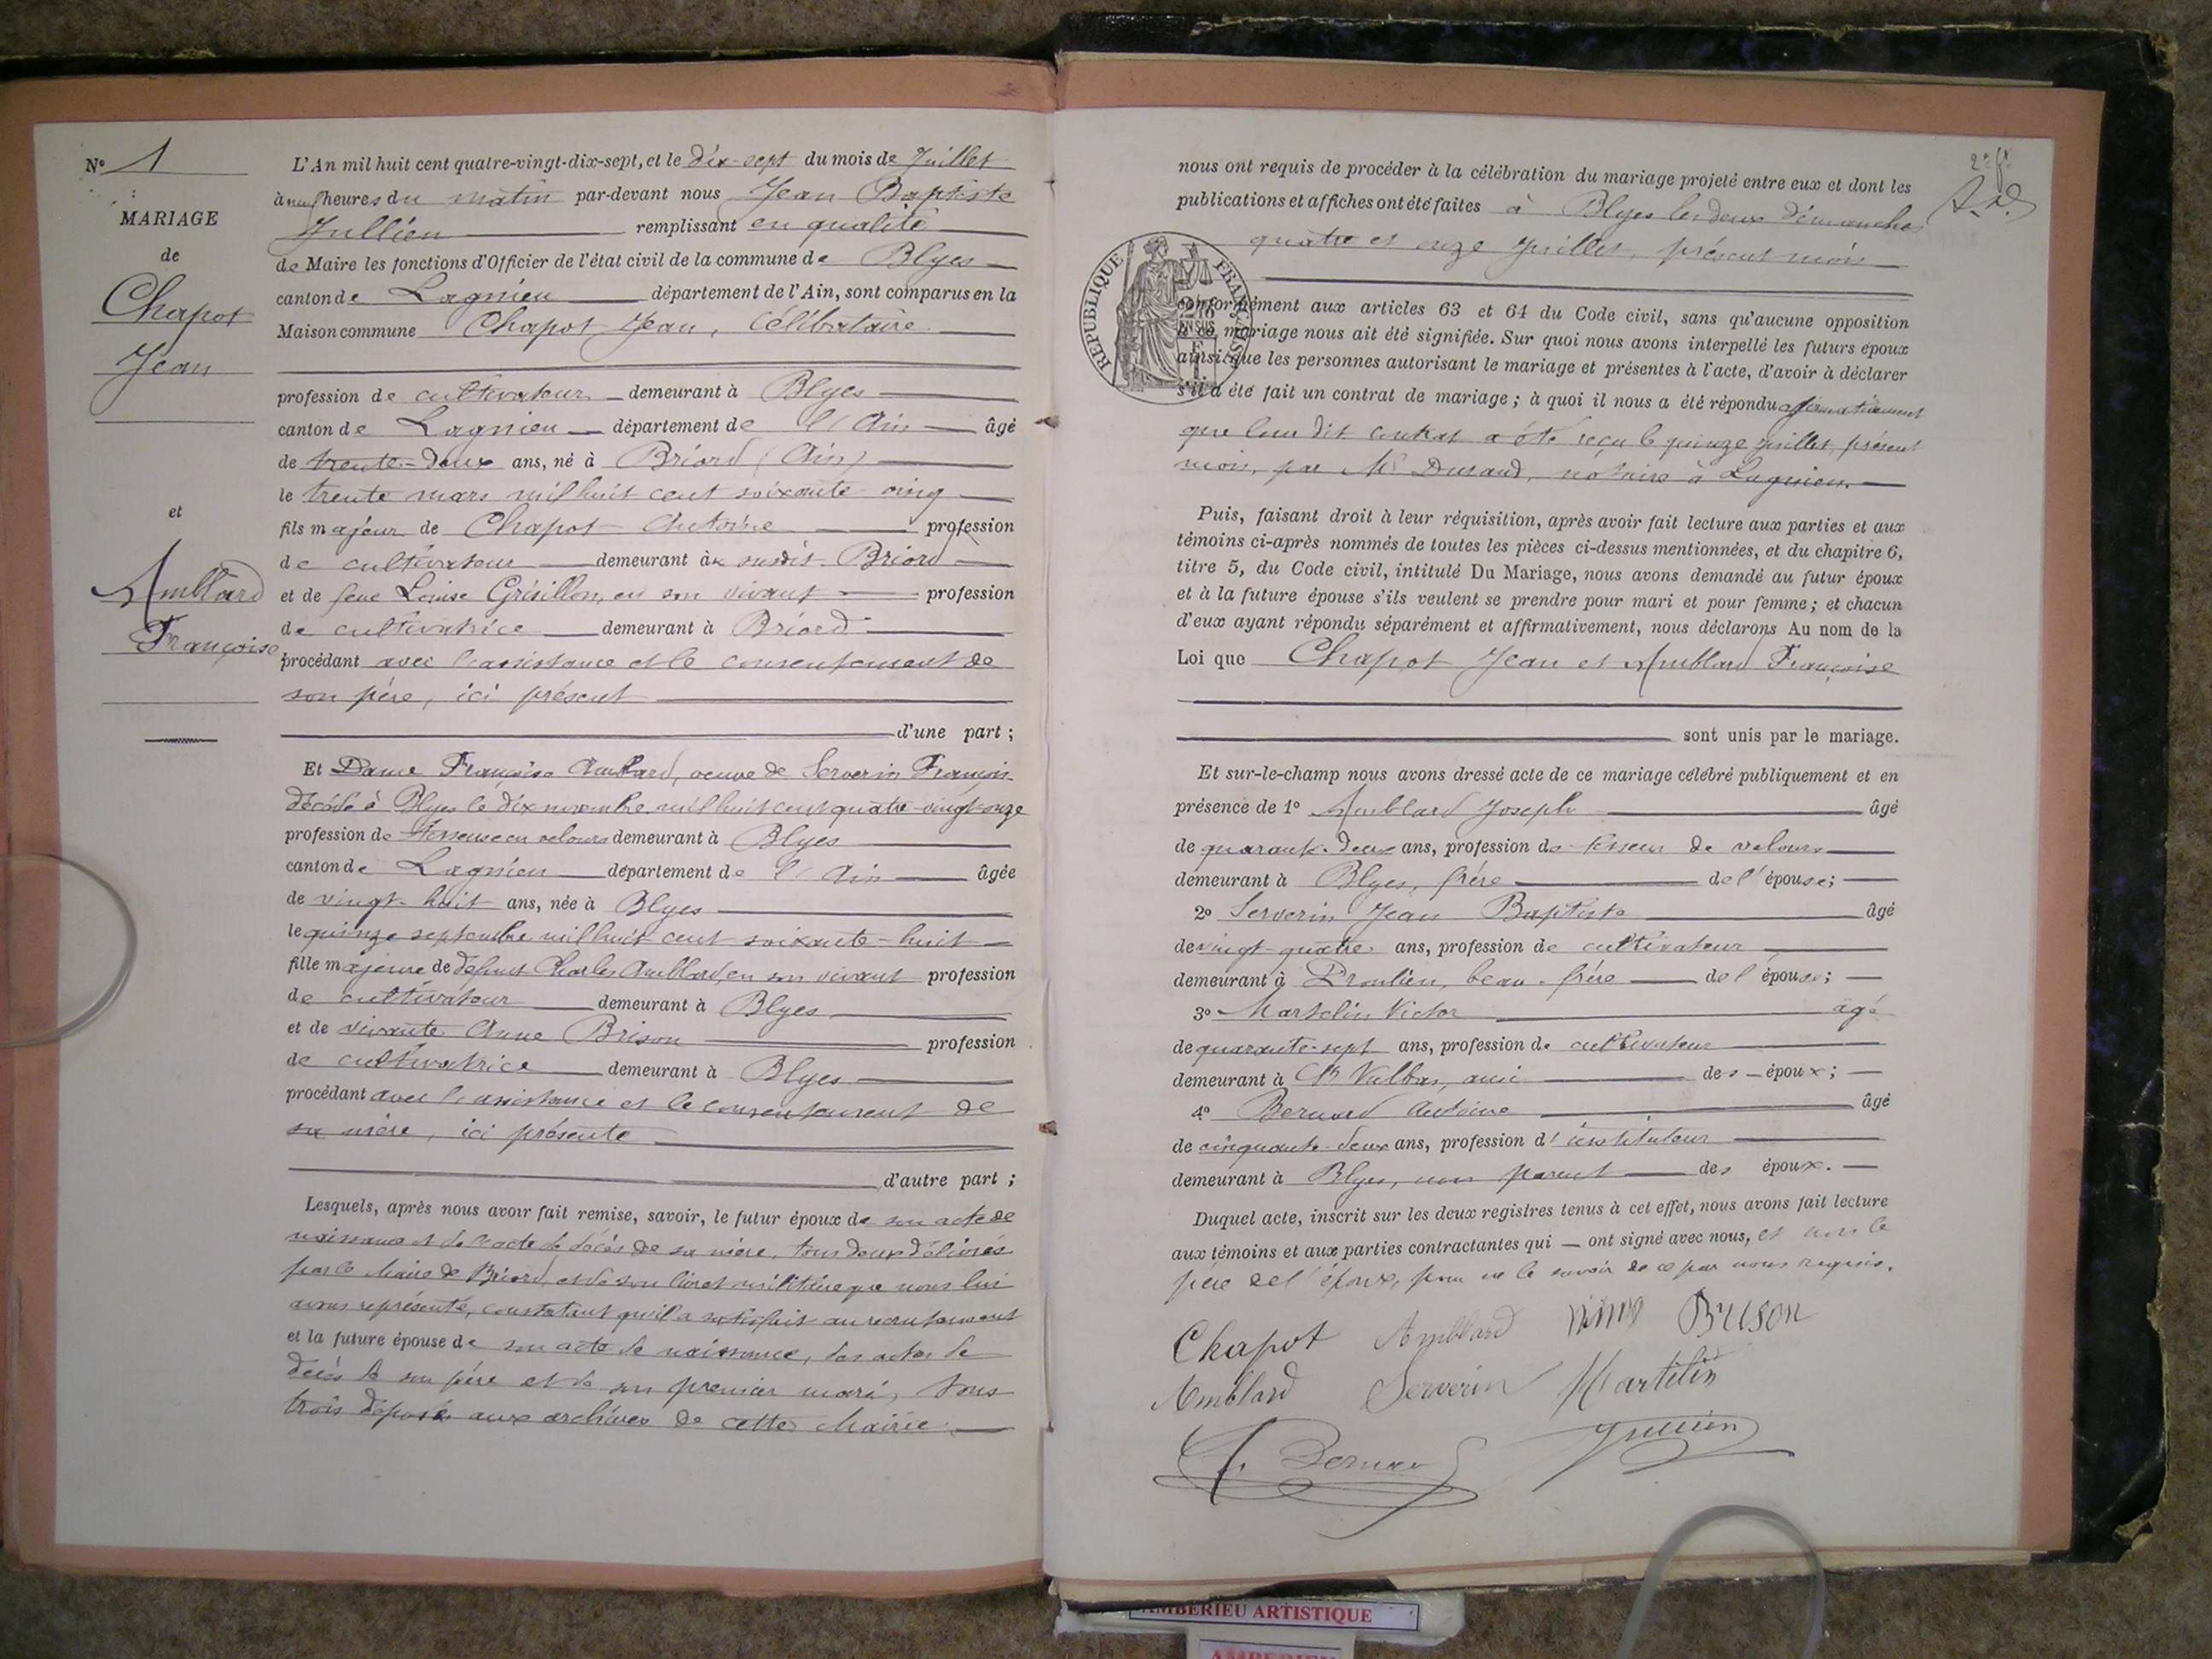 N° 1
MARIAGE
de
Chapot
Jean
et
Amblard
Françoise
L'An mil huit cent quatre-vingt-dix-sept, et le dix-sept du mois de Juillet
à neuf heures du matin par-devant nous Jean Baptiste
Jullien remplissant en qualité
de Maire les fonctions d'Officier de l'état civil de la commune de Blyes
canton de Lagnieu département de l'Ain, sont comparus en la
Maison commune Chapot Jean, célibataire
profession de cultivateur demeurant à Blyes
canton de Lagnieu département de l'Ain âgé
de trente-deux ans, né à Briord (Ain)
le trente mars mil huit cent soixante-cinq
fils majeur de Chapot Antoine profession
de cultivateur demeurant au susdit Briord
et de feue Louise Grisillon, en son vivant profession
de cultivatrice demeurant à Briord
procédant avec l'assistance et le consentement de
son père, ici présent
d'une part ;
Et Dame Françoise Amblard, veuve de Serverin François
décédé à Blyes le dix novembre mil huit cent quatre-vingt-onze
profession de tisseuse en velours demeurant à Blyes
canton de Lagnieu département de l'Ain âgée
de vingt-huit ans, née à Blyes
le quinze septembre mil huit cent soixante-huit
fille majeure de défunt Charles Amblard, en son vivant profession
de cultivateur demeurant à Blyes
et de vivante Anne Brison profession
de cultivatrice demeurant à Blyes
procédant avec l'assistance et le consentement de
sa mère, ici présente
d'autre part ;
Lesquels, après nous avoir fait remise, savoir, le futur époux de son acte de
naissance et de l'acte de décès de sa mère, tous deux délivrés
par le Maire de Briord, et de son livret militaire que nous lui
avons représenté, constatant qu'il a satisfait au recrutement
et la future épouse de son acte de naissance, des actes de
décès de son père et de son premier mari, tous
trois déposés aux archives de cette Mairie.
2e ft
nous ont requis de procéder à la célébration du mariage projeté entre eux et dont les
publications et affiches ont été faites à Blyes les deux dimanches
quatre et onze juillet, présent mois
RÉPUBLIQUE FRANÇAISE
conformément aux articles 63 et 64 du Code civil, sans qu'aucune opposition
à ce mariage nous ait été signifiée. Sur quoi nous avons interpellé les futurs époux
ainsi que les personnes autorisant le mariage et présentes à l'acte, d'avoir à déclarer
s'il a été fait un contrat de mariage ; à quoi il nous a été répondu affirmativement
que leur dit contrat a été reçu le quinze juillet, présent
mois, par Me Durand, notaire à Lagnieu.
Puis, faisant droit à leur réquisition, après avoir fait lecture aux parties et aux
témoins ci-après nommés de toutes les pièces ci-dessus mentionnées, et du chapitre 6,
titre 5, du Code civil, intitulé Du Mariage, nous avons demandé au futur époux
et à la future épouse s'ils veulent se prendre pour mari et pour femme ; et chacun
d'eux ayant répondu séparément et affirmativement, nous déclarons Au nom de la
Loi que Chapot Jean et Amblard Françoise
sont unis par le mariage.
Et sur-le-champ nous avons dressé acte de ce mariage célébré publiquement et en
présence de 1° Amblard Joseph âgé
de quarante-deux ans, profession de tisseur de velours
demeurant à Blyes, frère de l'épouse ;
2° Serverin Jean Baptiste âgé
de vingt-quatre ans, profession de cultivateur
demeurant à Proulieu, beau-frère de l'épouse ;
3° Martelin Victor âgé
de quarante-sept ans, profession de cultivateur
demeurant à St Vulbas, ami des époux ;
4° Bernard Antoine âgé
de cinquante-deux ans, profession d'instituteur
demeurant à Blyes, non parent des époux.
Duquel acte, inscrit sur les deux registres tenus à cet effet, nous avons fait lecture
aux témoins et aux parties contractantes qui ont signé avec nous, et non le
père de l'époux, pour ne le savoir de ce par nous requis.
Chapot Amblard Brison
Amblard Serverin Martelin
A. Bernard Jullien
AMBERIEU ARTISTIQUE
AMBERIEU